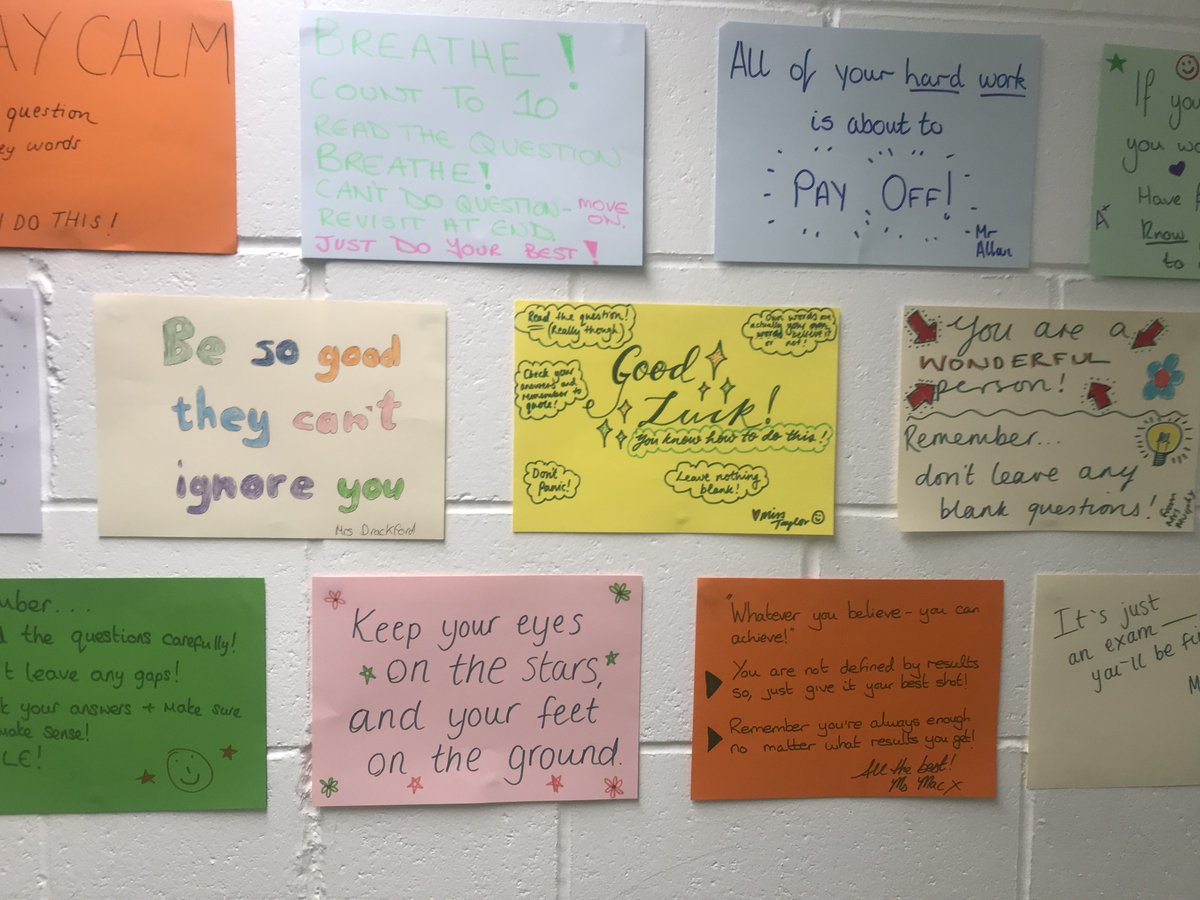 AY CALM
question
ey words
I DO THIS!
BREATHE!
COUNT TO 10
READ THE QUESTION
BREATHE!
CAN'T DO QUESTION- MOVE ON.
REVISIT AT END.
JUST DO YOUR BEST!
All of your hard work
is about to
PAY OFF!
- Mr
Allan
If you
you wo
Have f
A*
Know
to
Be so good
they can't
ignore you
Mrs Drackford
Read the question!
(Really though)
Own words me
actually your own
words believe it
or not!
Check your
answers and
remember to
quote!
Good
Luck!
You know how to do this!
Don't
Panic!
Leave nothing
blank!
Miss
Taylor
You are a
WONDERFUL
person!
Remember...
don't leave any
blank questions!
from
Mrs
mber...
d the questions carefully!
't leave any gaps!
k your answers + make sure
make sense!
LE!
Keep your eyes
on the stars,
and your feet
on the ground.
"Whatever you believe - you can
achieve!"
You are not defined by results
so, just give it your best shot!
Remember you're always enough
no matter what results you get!
All the best!
Ms Mac x
It's just
an exam
you'll be fi
M